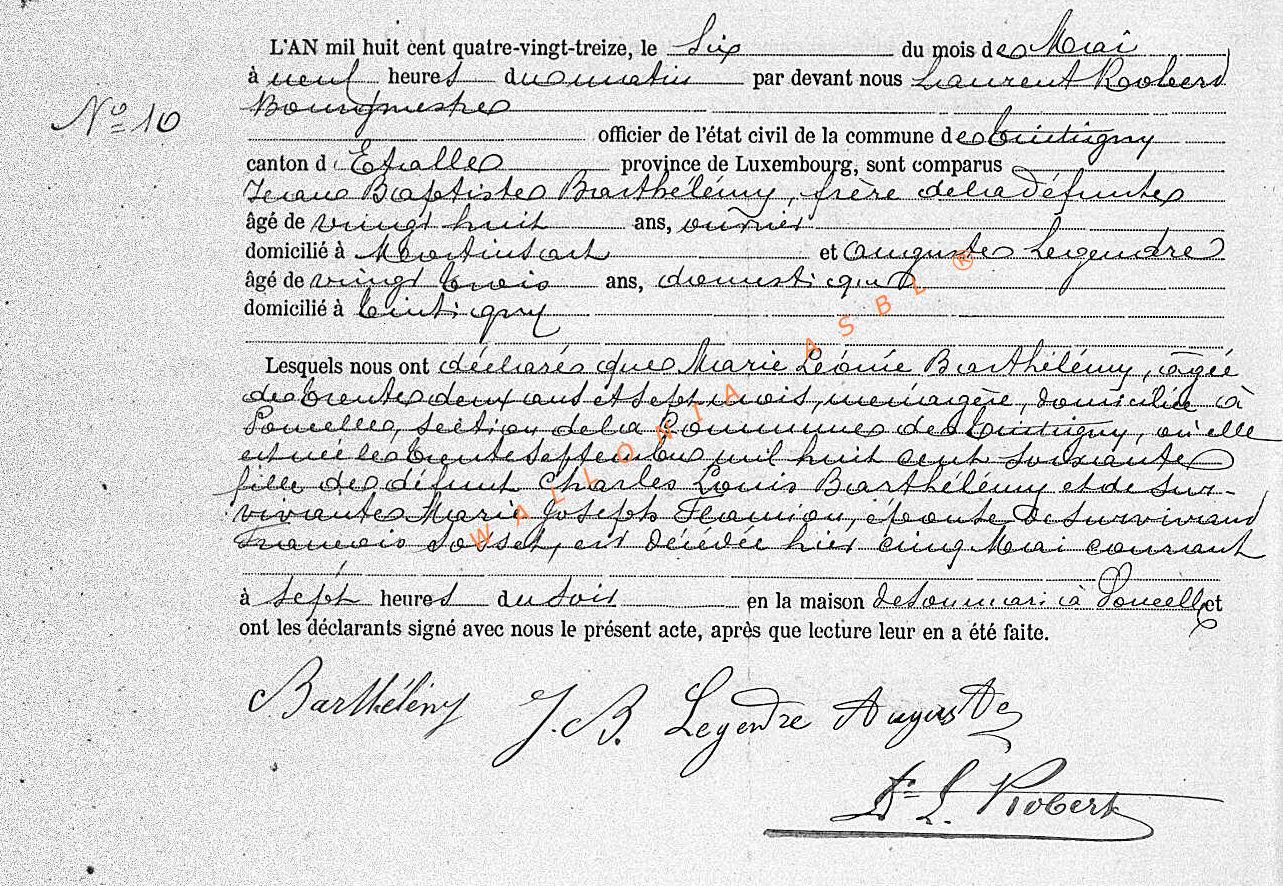 L'AN mil huit cent quatre-vingt-treize, le Six du mois de Mai
à neuf heures du matin par devant nous Laurent Robert
Bourgmestre
N° 10
officier de l'état civil de la commune de Tintigny
canton d'Etalle province de Luxembourg, sont comparus
Jean Baptiste Barthélémy, frère de la défunte
âgé de vingt huit ans, ouvrier
domicilié à Martinsart et Auguste Legendre
âgé de vingt trois ans, domestique
domicilié à Tintigny
Lesquels nous ont déclaré que Marie Léonie Barthélémy, âgée
de trente deux ans et sept mois, ménagère, domiciliée à
Poncelle, section de la Commune de Tintigny, où elle
est née le trente Septembre mil huit cent soixante
fille de défunt Charles Louis Barthélémy et de sur-
vivante Marie Joseph Flamion, épouse de survivant
François Josset, est décédée hier cinq Mai courant
à sept heures du soir en la maison de son mari à Poncelle et
ont les déclarants signé avec nous le présent acte, après que lecture leur en a été faite.
Barthélémy J. B. Legendre Auguste
Dr L. Robert
WALLONIA ASBL ®